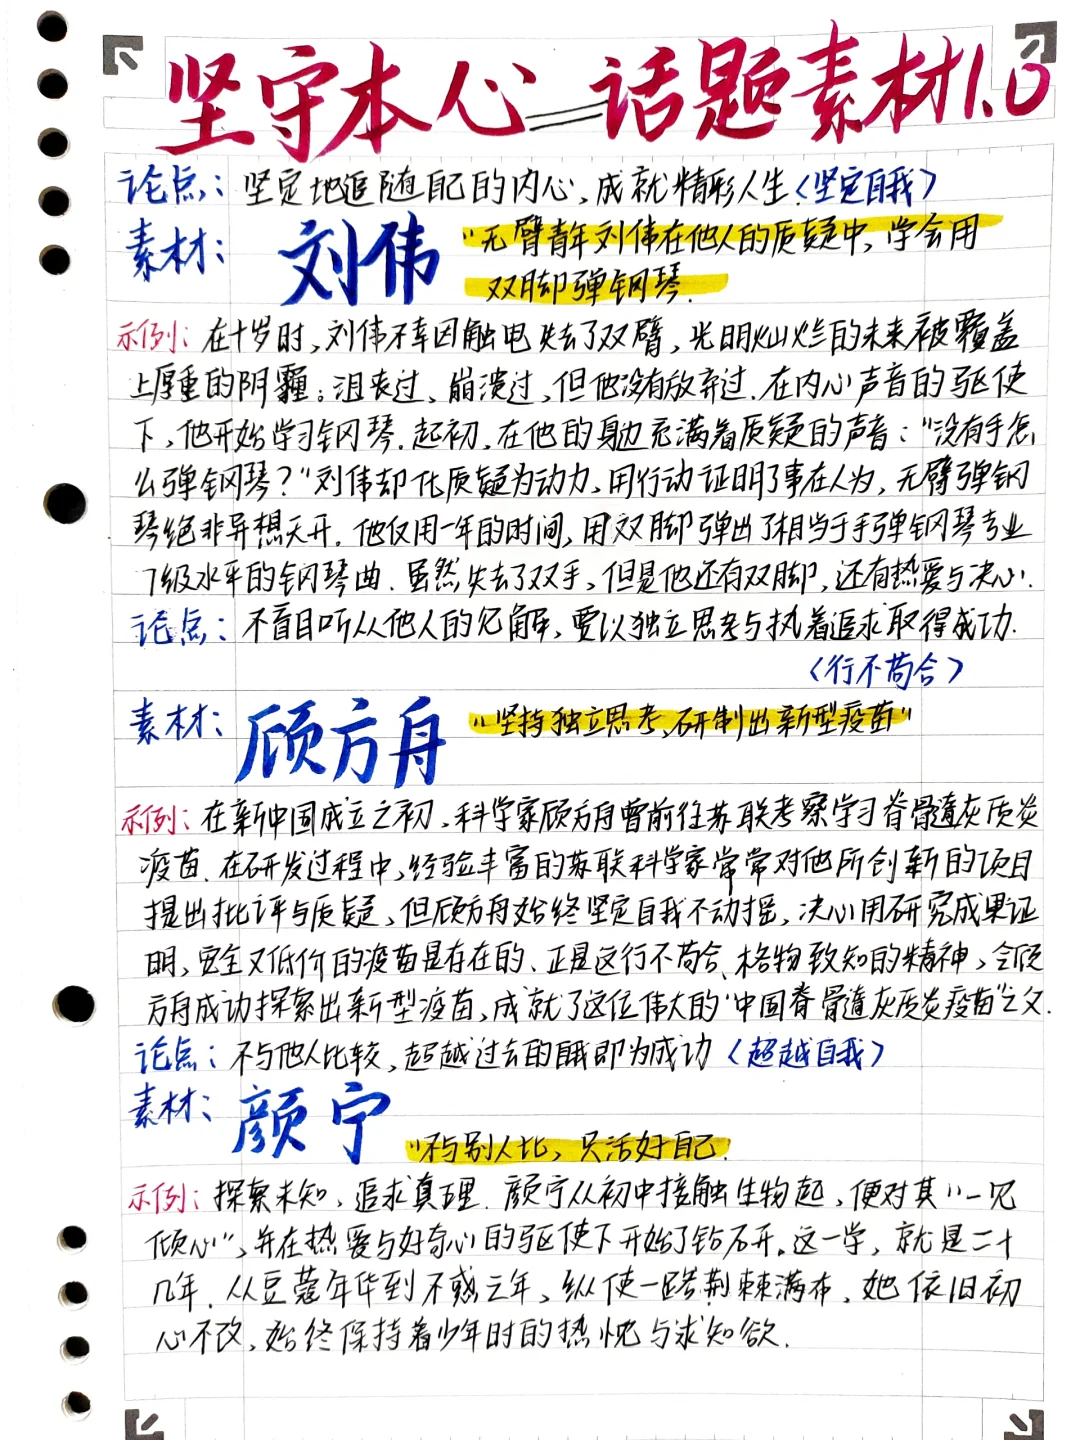 坚守本心——话题素材1.0
论点：坚定地追随自己的内心，成就精彩人生〈坚定自我〉
素材：刘伟 "无臂青年刘伟在他人的质疑中，学会用
双脚弹钢琴.
示例：在十岁时，刘伟不幸因触电失去了双臂，光明灿烂的未来被覆盖
上厚重的阴霾。沮丧过，崩溃过，但他没有放弃过.在内心声音的驱使
下，他开始学习钢琴.起初，在他的身边充满着质疑的声音："没有手怎
么弹钢琴？"刘伟却化质疑为动力，用行动证明了事在人为，无臂弹钢
琴绝非异想天开.他仅用一年的时间，用双脚弹出了相当于手弹钢琴专业
7级水平的钢琴曲.虽然失去了双手，但是他还有双脚，还有热爱与决心.
论点：不盲目听从他人的见解，要以独立思考与执着追求取得成功.
〈行不苟合〉
素材：顾方舟 "坚持独立思考，研制出新型疫苗"
示例：在新中国成立之初，科学家顾方舟曾前往苏联考察学习脊髓灰质炎
疫苗.在研发过程中，经验丰富的苏联科学家常常对他所创新的项目
提出批评与质疑，但顾方舟始终坚定自我不动摇，决心用研究成果证
明，安全又低价的疫苗是存在的、正是这行不苟合、格物致知的精神，令顾
方舟成功探索出新型疫苗，成就了这位伟大的"中国脊髓灰质炎疫苗"之父.
论点：不与他人比较，超越过去的自我即为成功〈超越自我〉
素材：颜宁 "不与别人比，只活好自己.
示例：探索未知，追求真理.颜宁从初中接触生物起，便对其"一见
倾心"，并在热爱与好奇心的驱使下开始了钻研。这一学，就是二十
几年.从豆蔻年华到不惑之年，纵使一路荆棘满布，她依旧初
心不改，始终保持着少年时的热忱与求知欲.